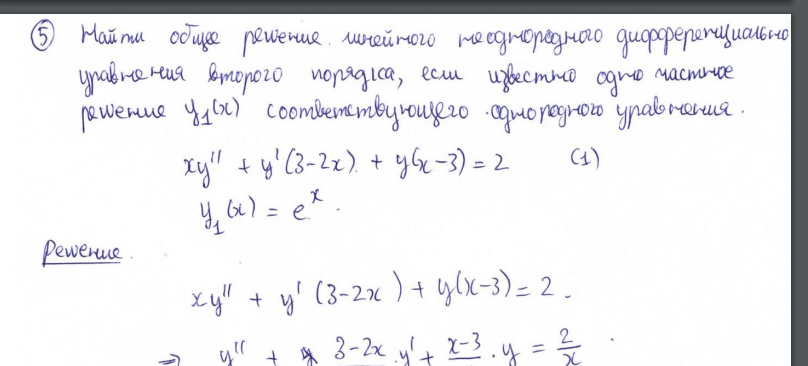 ⑤ Найти общее решение линейного неоднородного дифференциально
уравнения второго порядка, если известно одно частное
решение y₁(x) соответствующего однородного уравнения.
xy'' + y'(3-2x) + y(x-3) = 2 (1)
y₁(x) = eˣ.
Решение.
xy'' + y'(3-2x) + y(x-3) = 2.
⇒ y'' + 3-2x .y' + x-3 . y = 2/x